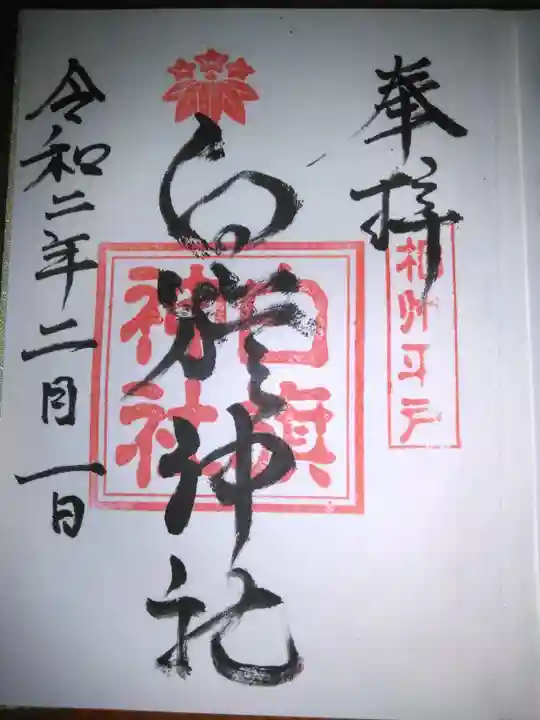 奉拝
相州平戸
白旗神社
白旗神社
令和二年二月一日